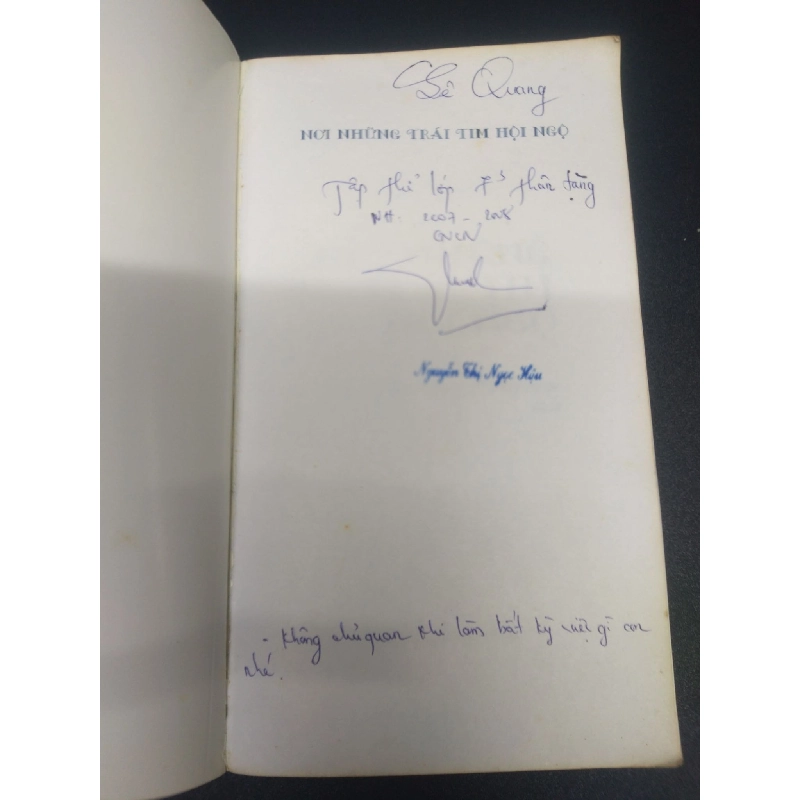 Lê Quang
NƠI NHỮNG TRÁI TIM HỘI NGỘ
Tập thể lớp 7³ thân tặng
NH: 2007 - 2008
GVCN
Nguyễn Thị Ngọc Hậu
- Không chủ quan khi làm bất kỳ việc gì con
nhé.